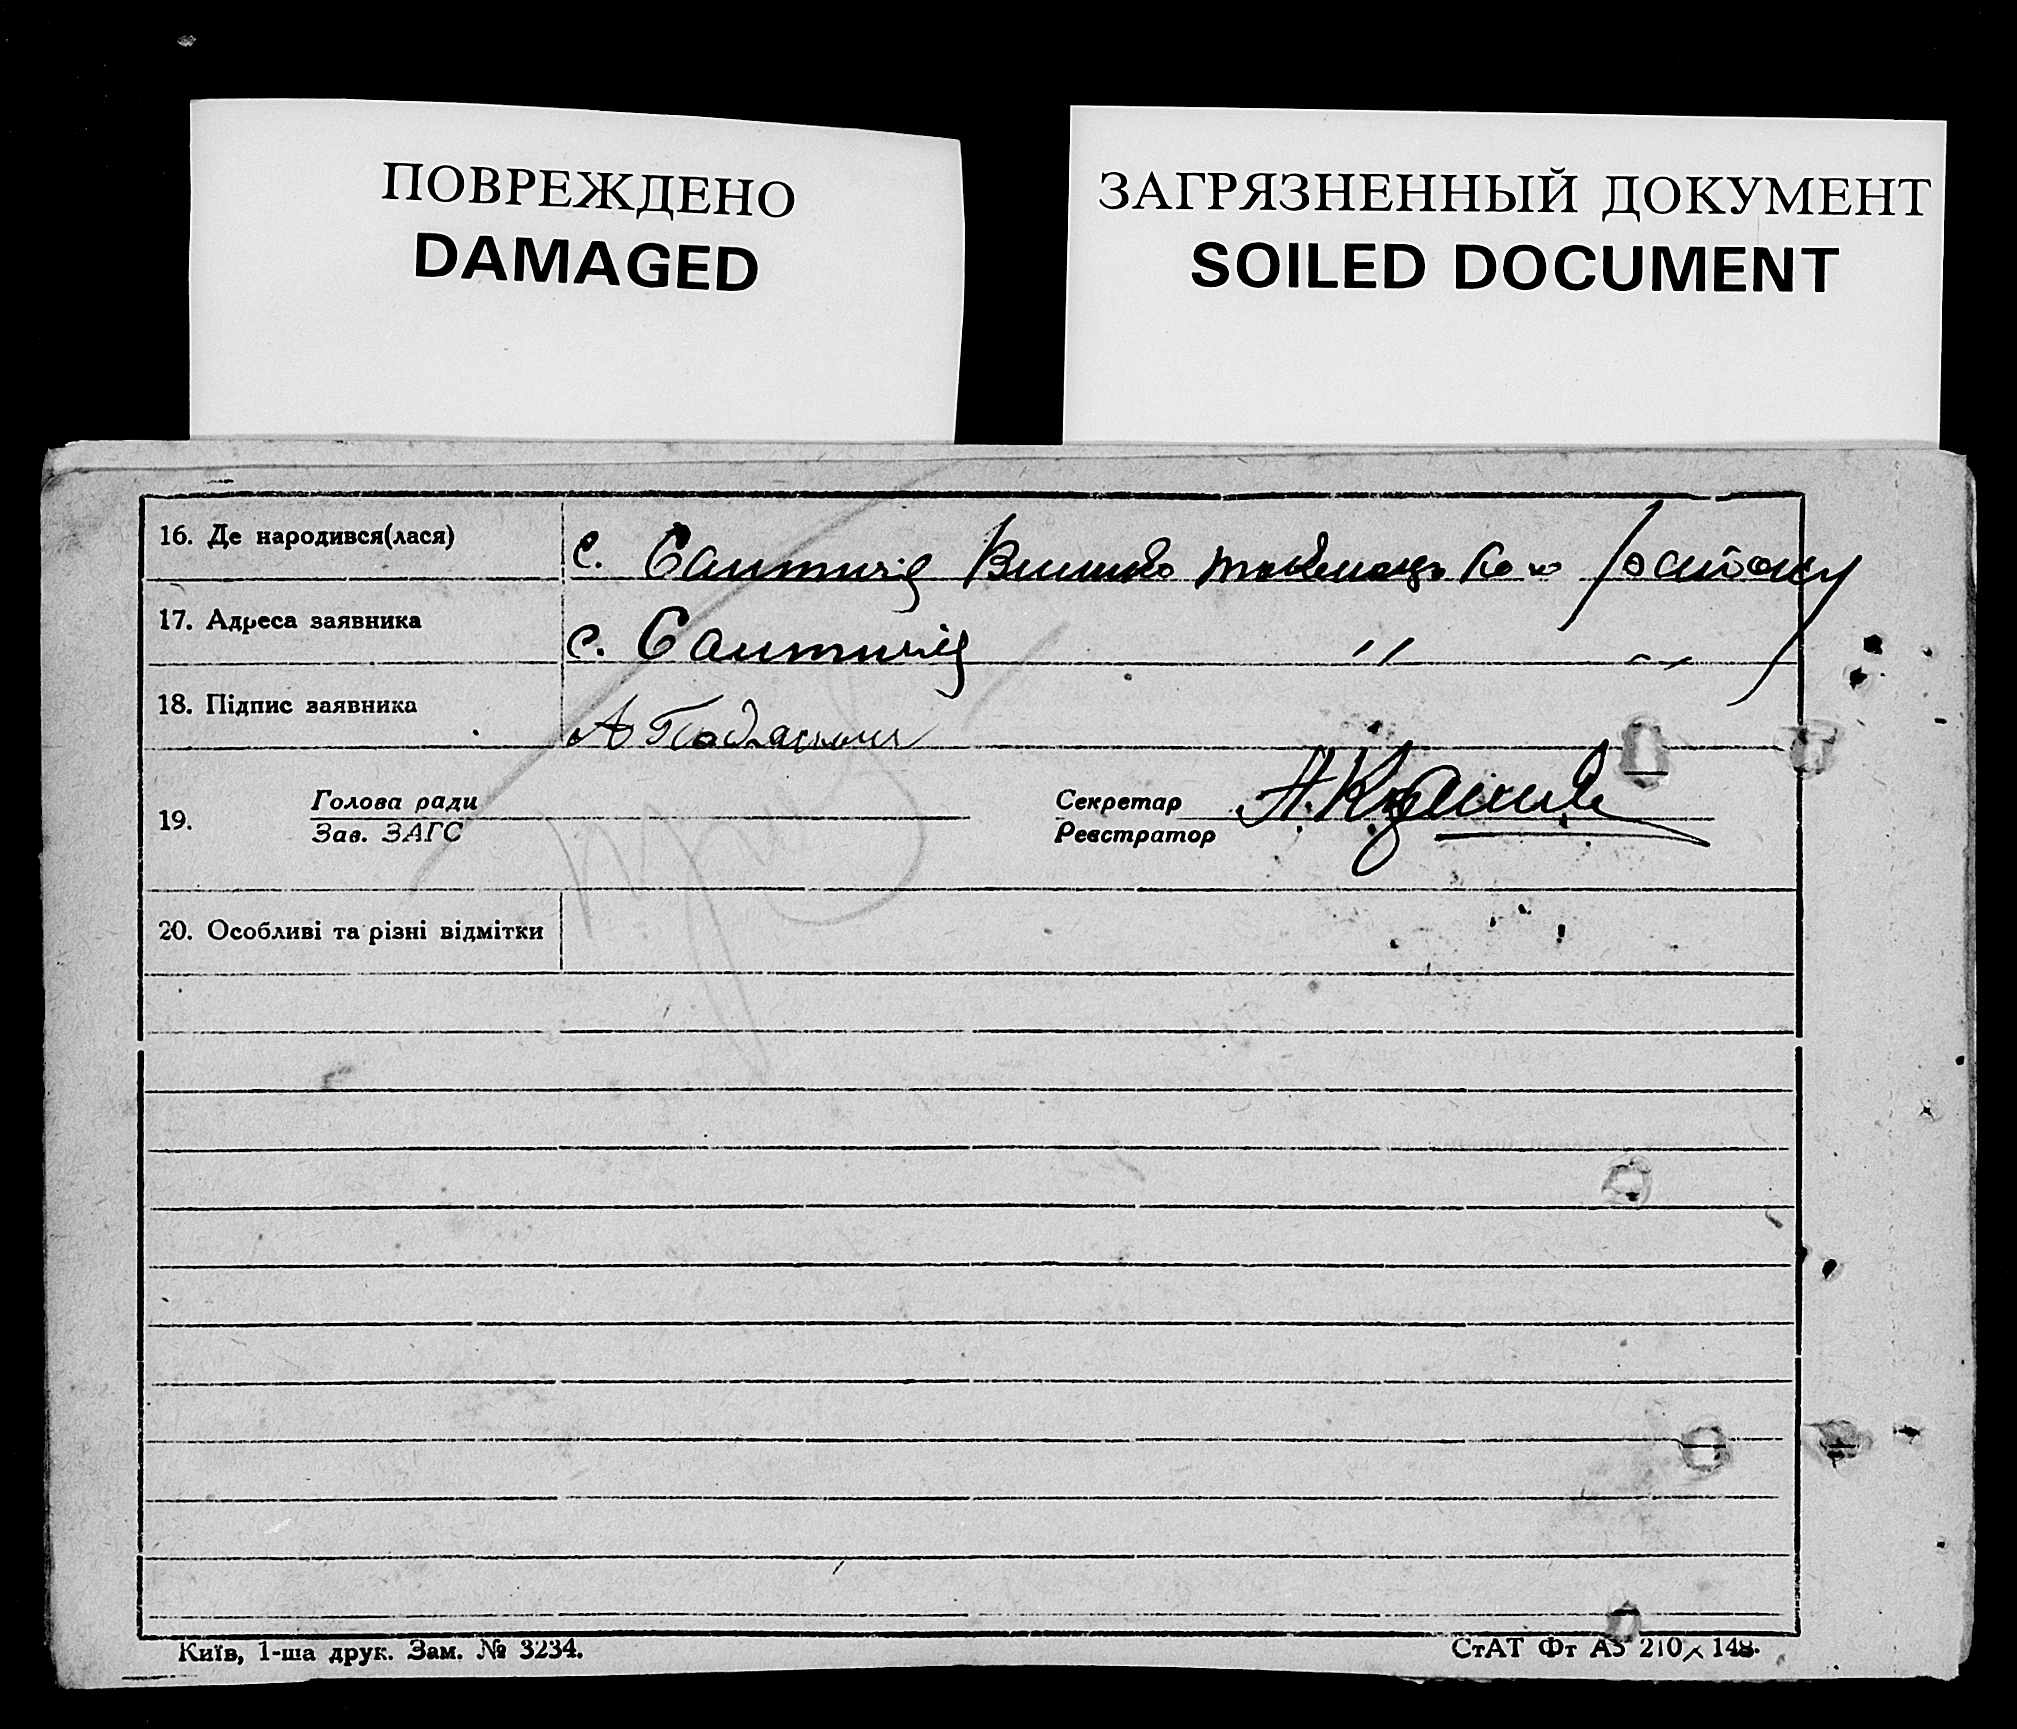 ПОВРЕЖДЕНО
DAMAGED
ЗАГРЯЗНЕННЫЙ ДОКУМЕНТ
SOILED DOCUMENT
16. Де народився(лася) с. району
17. Адреса заявника с. " "
18. Підпис заявника А
19. Голова ради
Зав. ЗАГС
Секретар
Реєстратор
20. Особливі та різні відмітки
Київ, 1-ша друк. Зам. № 3234.
СтАТ Фт А5 210×148.